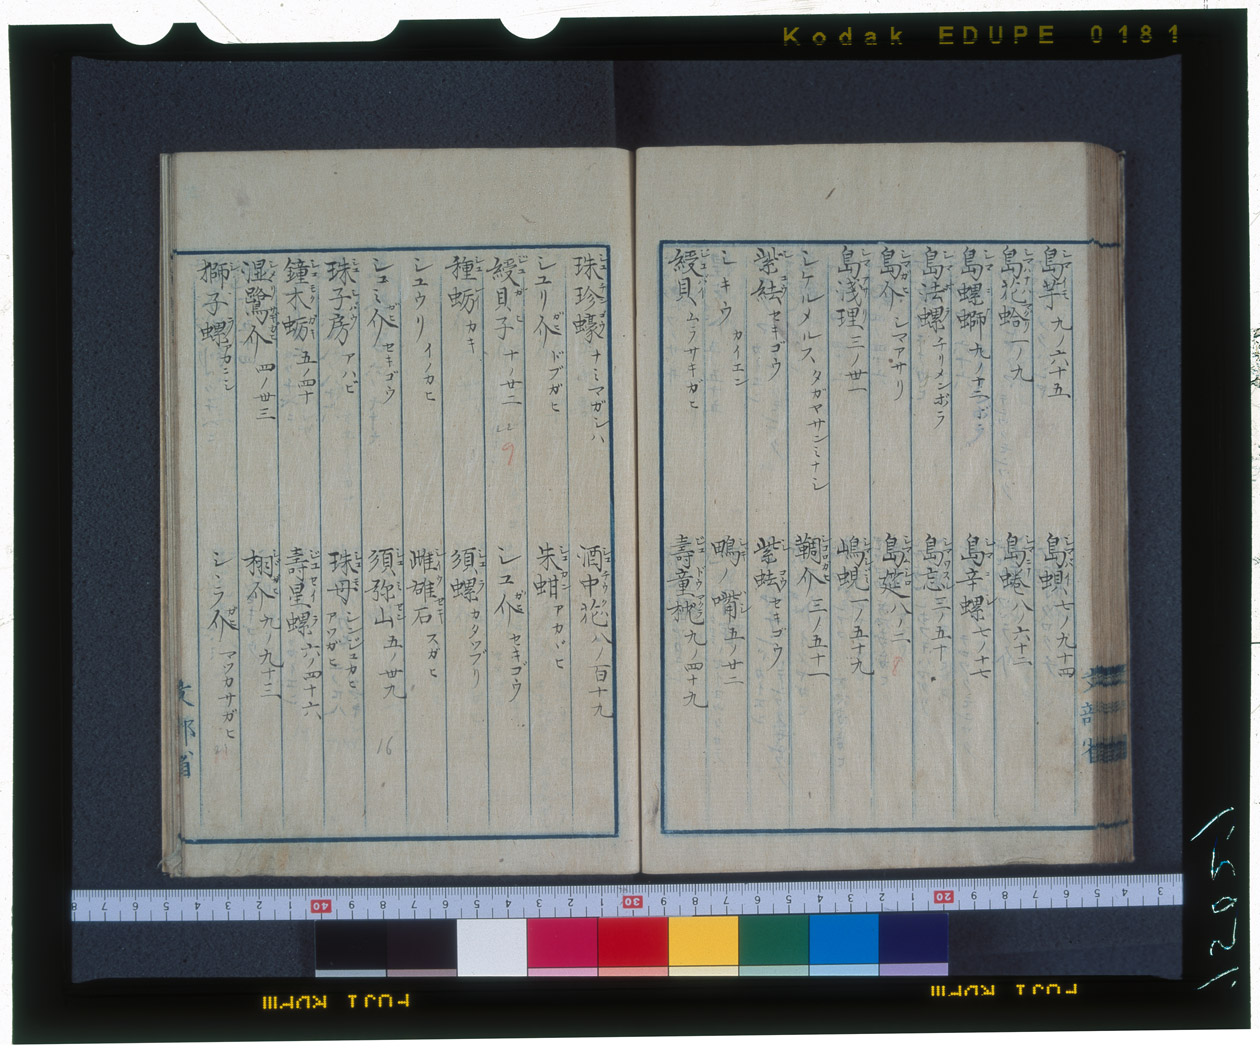 Kodak EDUPE 0181
島芋 九ノ六十五
島花蛤 一ノ九
島螺螄 九ノ十二
島法螺 チリメンボラ
島介 シマアサリ
島浅理 三ノ廿一
シケルメルス タガヤサンミナシ
紫紶 セキゴウ
シキウ カイエン
綬貝 ムラサキガヒ
島蛽 七ノ九十四
島蜷 八ノ六十二
島辛螺 七ノ十七
島忘 三ノ五十
島莚 八ノ二
嶋蜆 一ノ五十九
鞘介 三ノ五十一
紫𧉧 セキゴウ
鴫ノ嘴 五ノ廿二
壽童枕 九ノ四十九
文部省
珠珍蠔 ナミマガシハ
シユリ介 ドブガヒ
綬貝子 十ノ廿二
種蛎 カキ
シユウリ イノカヒ
シユミ介 セキゴウ
珠子房 アハビ
鐘木蛎 五ノ四十
湿鷺介 四ノ廿三
獅子螺 アカニシ
酒中花 八ノ百十九
朱蚶 アカガヒ
シユ介 セキゴウ
須螺 カタツブリ
雌雄石 スガヒ
須弥山 五ノ廿九
珠母 シンジュカヒ アワガヒ
壽星螺 六ノ四十六
栩介 九ノ九十三
シヽラ介 マワカサガヒ
16
文部省
40
30
20
FUJI RDPIII
FUJI RDPIII